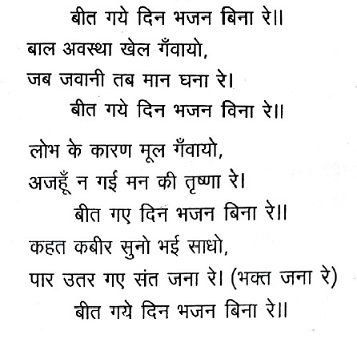 बीत गये दिन भजन बिना रे॥
बाल अवस्था खेल गँवायो,
जब जवानी तब मान घना रे।
बीत गये दिन भजन विना रे॥
लोभ के कारण मूल गँवायो,
अजहूँ न गई मन की तृष्णा रे।
बीत गए दिन भजन बिना रे॥
कहत कबीर सुनो भई साधो,
पार उतर गए संत जना रे। (भक्त जना रे)
बीत गये दिन भजन बिना रे॥